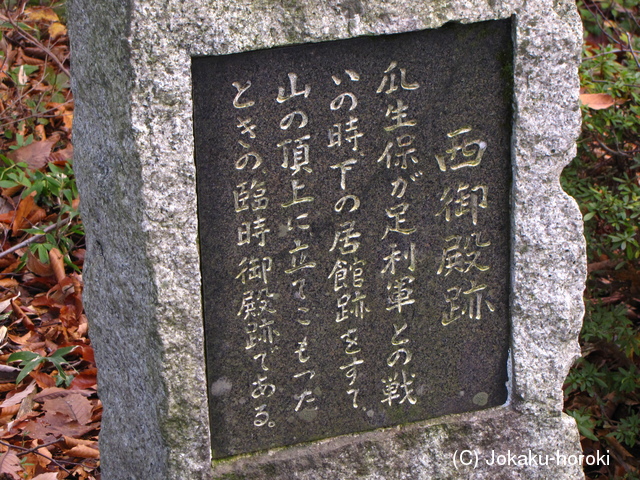 西御殿跡
瓜生保が足利軍との戦
いの時下の居館跡をすて
山の頂上に立てこもつた
ときの臨時御殿跡である。
(C) Jokaku-horoki